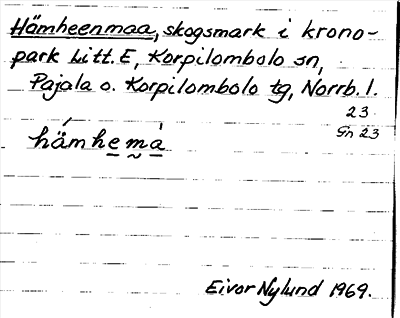 Hämheenmaa, skogsmark i krono-
park Litt. E, Korpilombolo sn,
Pajala o. Korpilombolo tg, Norrb. l.
23
Sn 23
hämhema
Eivor Nylund 1969.